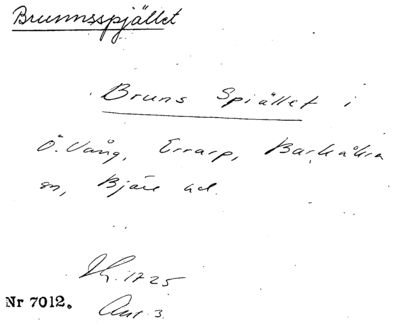 Brunnsspjället
Bruns Spiället i
Ö. Vång, Errarp, Barkåkra
sn, Bjäre hd.
Lh. 1725
Ant. 3.
Nr 7012.